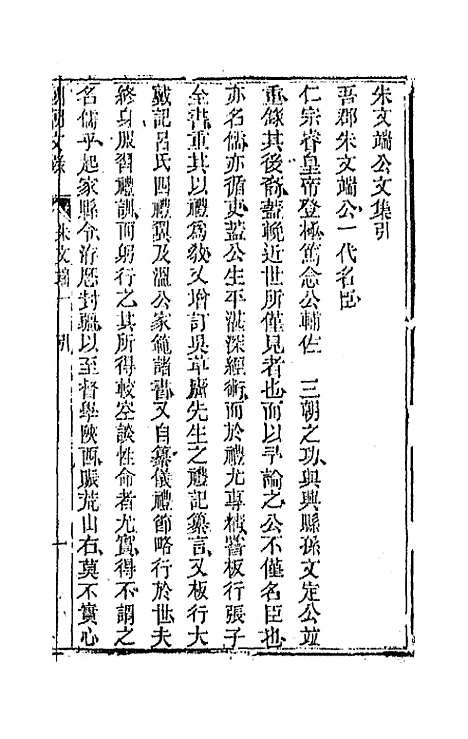 朱文端公文集引
吾郡朱文端公一代名臣
仁宗睿皇帝登極篤念公輔佐　三朝之功與興縣孫文定公竝
重錄其後裔蓋晚近世所僅見者也而以予論之公不僅名臣也
亦名儒亦循吏蓋公生平湛深經術而於禮尤專機嘗板行張子
全書重其以禮為教又增訂吳草廬先生之禮記纂言又板行大
戴記呂氏四禮翼及溫公家範諸書又自纂儀禮節略行於世夫
終身服習禮訓而躬行之其所得較空談性命者尤實得不謂之
名儒乎起家縣令洊歷封疆以至督學陝西賑荒山右莫不實心
朱文端　引　一